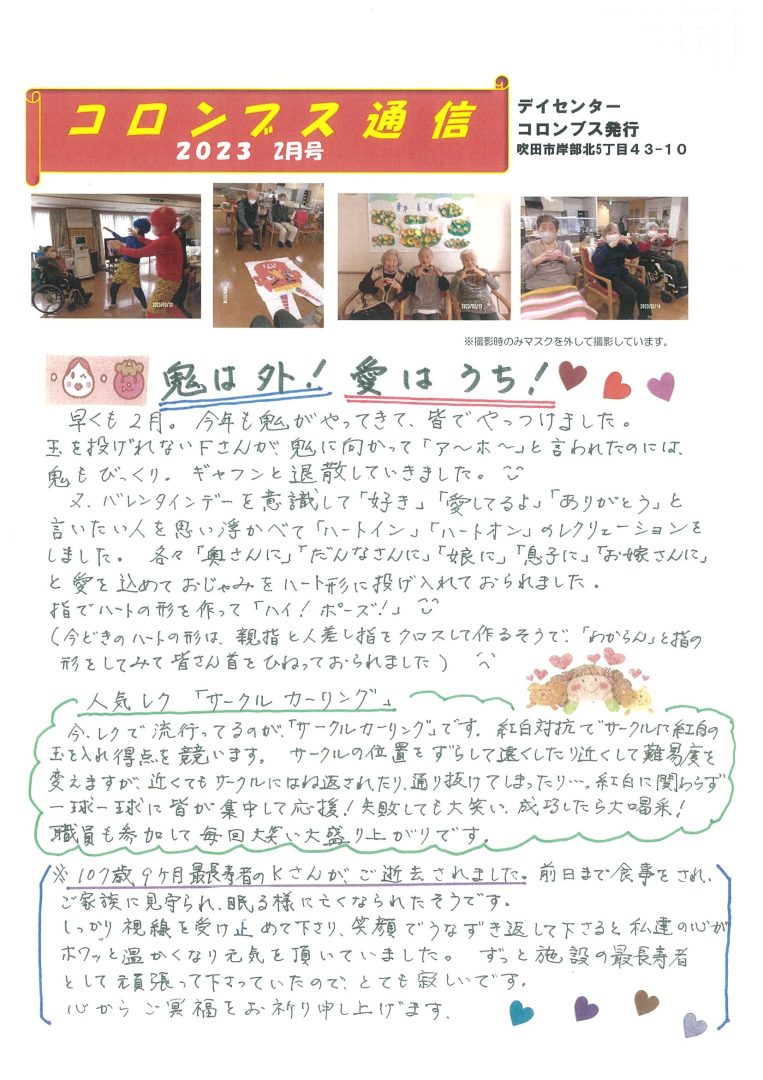 コロンブス通信
2023 2月号
デイセンター
コロンブス発行
吹田市岸部北5丁目43-10
※撮影時のみマスクを外して撮影しています。
鬼は外！ 愛はうち！
早くも2月。今年も鬼がやってきて、皆でやっつけました。
玉を投げれないFさんが、鬼に向かって「ア〜ホ〜」と言われたのには、
鬼もびっくり。ギャフンと退散していきました。
又、バレンタインデーを意識して「好き」「愛してるよ」「ありがとう」と
言いたい人を思い浮かべて「ハートイン」「ハートオン」のレクリェーションを
しました。各々「奥さんに」「だんなさんに」「娘に」「息子に」「お嫁さんに」
と愛を込めておじゃみをハート形に投げ入れておられました。
指でハートの形を作って「ハイ！ポーズ！」
(今どきのハートの形は、親指と人差し指をクロスして作るそうで、「わからん」と指の
形をしてみて皆さん首をひねっておられました)
人気レク「サークルカーリング」
今、レクで流行ってるのが、「サークルカーリング」です。紅白対抗でサークルに紅白の
玉を入れ得点を競います。サークルの位置をずらして遠くしたり近くして難易度を
変えますが、近くてもサークルにはね返されたり、通り抜けてしまったり…。紅白に関わらず
一球一球に皆が集中して応援！失敗しても大笑い、成功したら大喝采！
職員も参加して毎回大笑い大盛り上がりです。
※107歳9ケ月最長寿者のKさんが、ご逝去されました。前日まで食事をされ、
ご家族に見守られ、眠る様に亡くなられたそうです。
しっかり視線を受け止めて下さり、笑顔でうなずき返して下さると私達の心が
ホワッと温かくなり元気を頂いていました。ずっと施設の最長寿者
として頑張って下さっていたので、とても寂しいです。
心からご冥福をお祈り申し上げます。